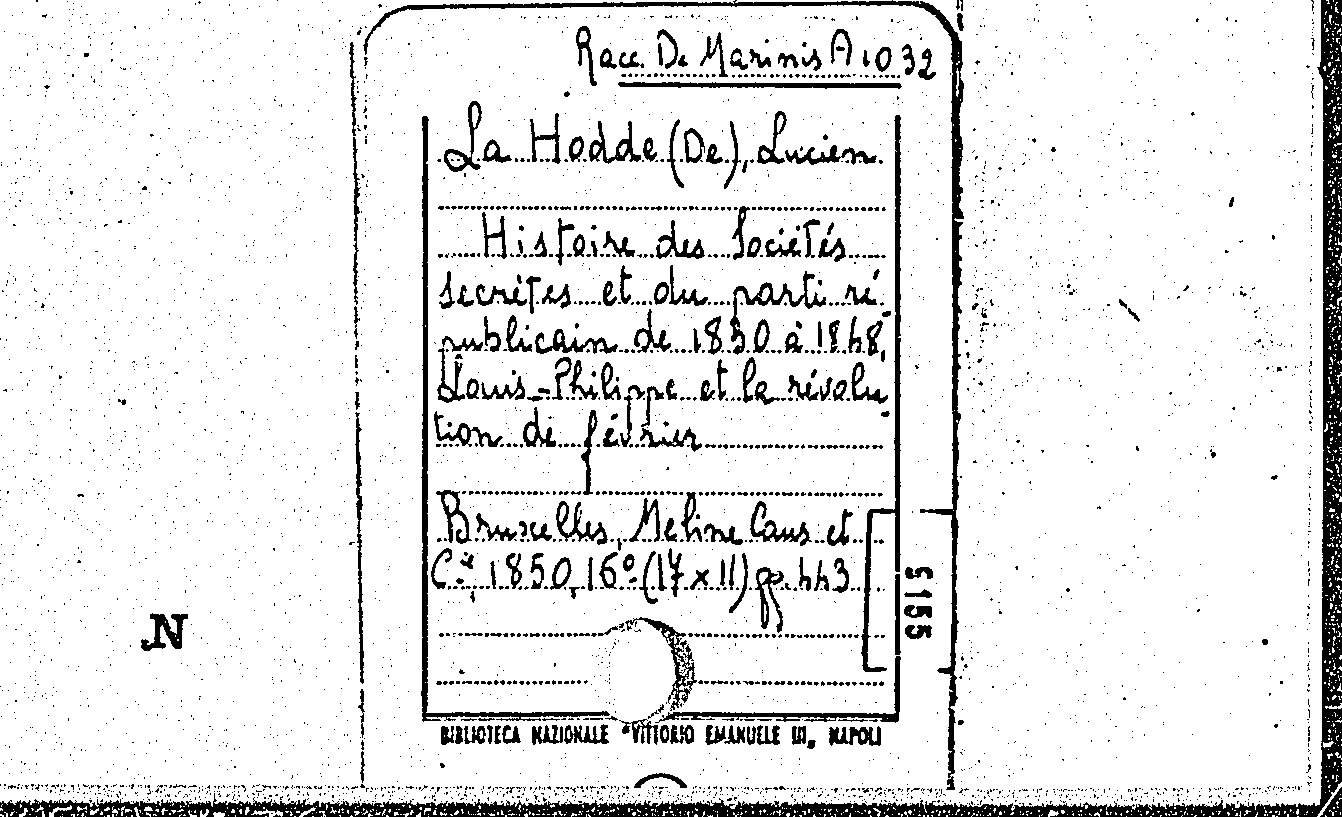 Racc. De Marinis A 1032
La Hodde (De), Lucien
Histoire des Sociétés
secrètes et du parti ré-
publicain de 1830 à 1848,
Louis-Philippe et la révolu-
tion de février
Bruxelles, Meline Caus et
C.ie, 1850, 16º (17 x 11) pp. 443
5155
N
BIBLIOTECA NAZIONALE "VITTORIO EMANUELE III„ NAPOLI